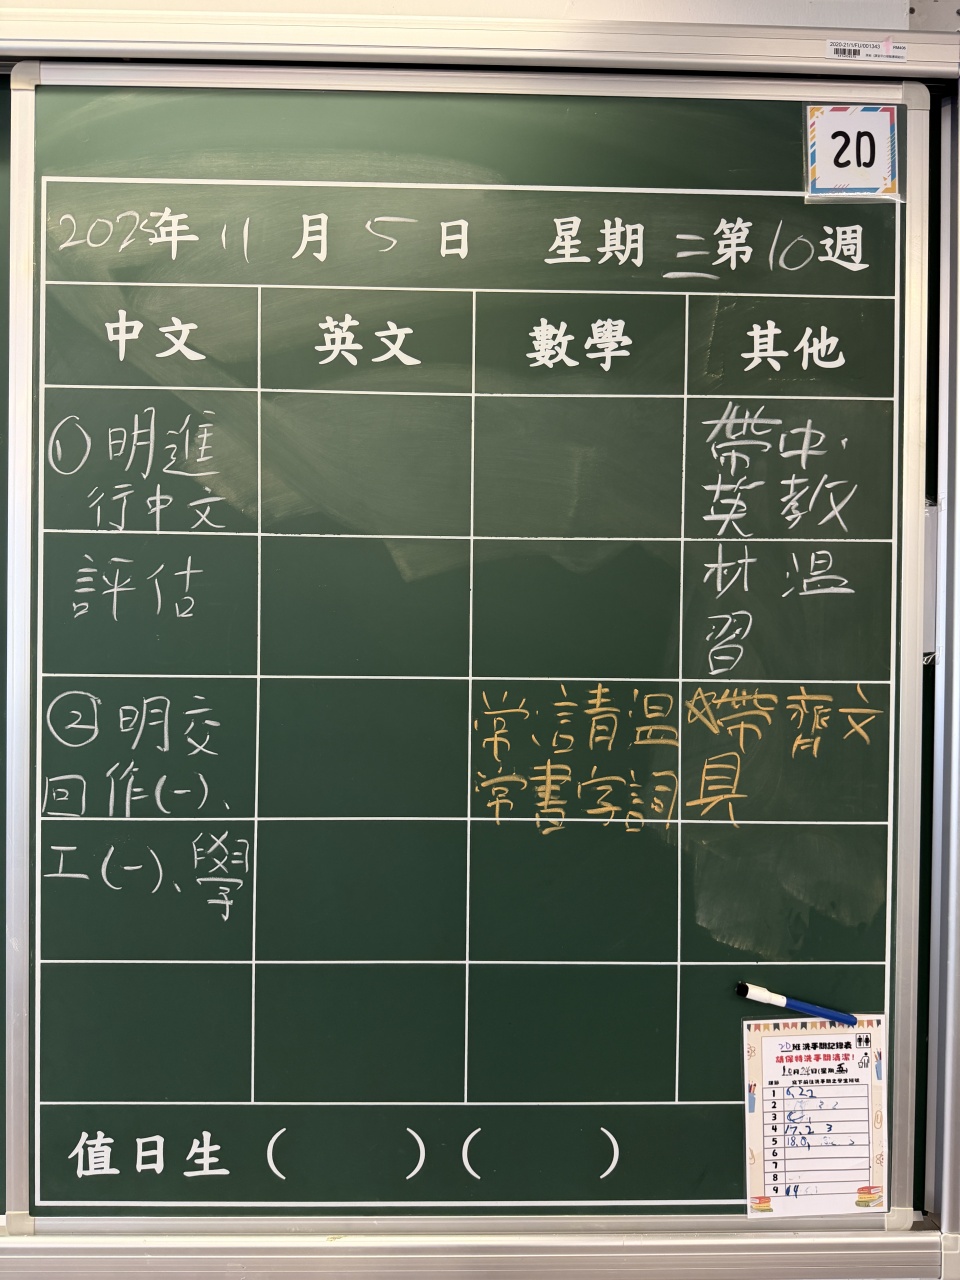 2020-21/1/FU/001343
RM406
2D
2025年11月5日 星期三第10週
中文 英文 數學 其他
①明進
行中文
評估
②明交
回作(一)、
工(一)、學
常:請溫
常書字詞
帶中、
英教
材溫
習
☆帶齊文
具
2D班洗手間記錄表
請保持洗手間清潔!
10月24日(星期五)
1 6,22
2
3
4 17,2 3
5 18,8,
6
7
8
9 14
值日生( )( )